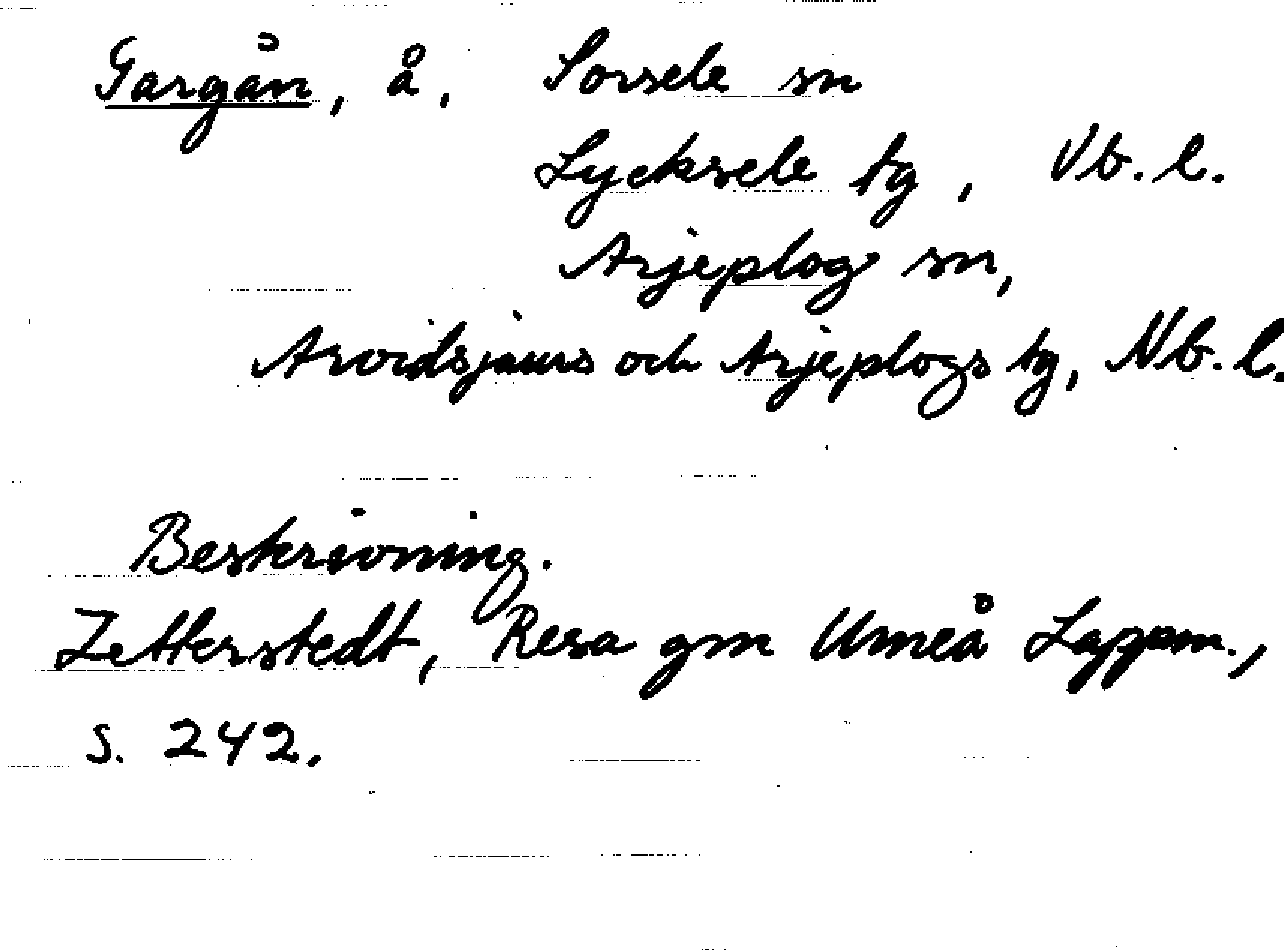 Gargån, å, Sorsele sn
Lycksele tg, Vb. l.
Arjeplog sn,
Arvidsjaurs och Arjeplogs tg, Nb. l.
Beskrivning.
Zetterstedt, Resa gm Umeå Lappm.,
s. 242.